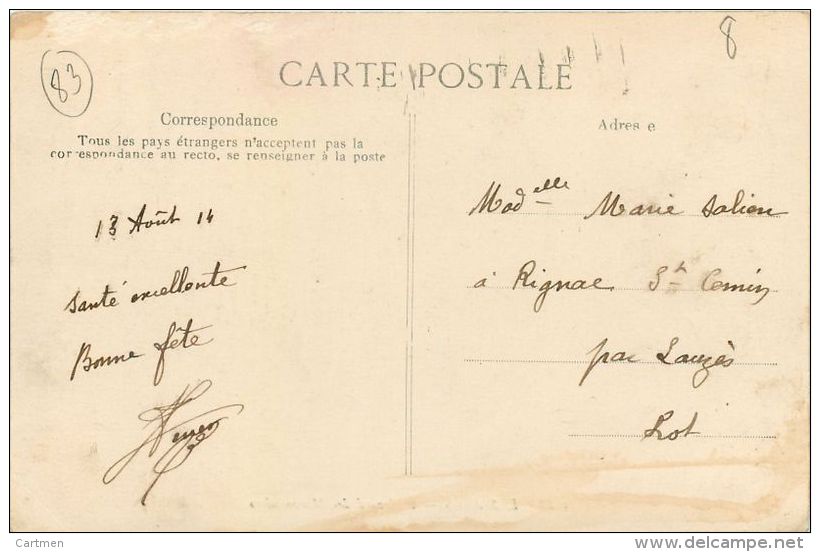 83
8
CARTE POSTALE
Correspondance
Tous les pays étrangers n'acceptent pas la
correspondance au recto, se renseigner à la poste
Adresse
13 Août 14
Santé excellente
Bonne fête
Mad elle Marie Solien
à Rignac St Cernin
par Lauzès
Lot
Cartmen
delcampe.net